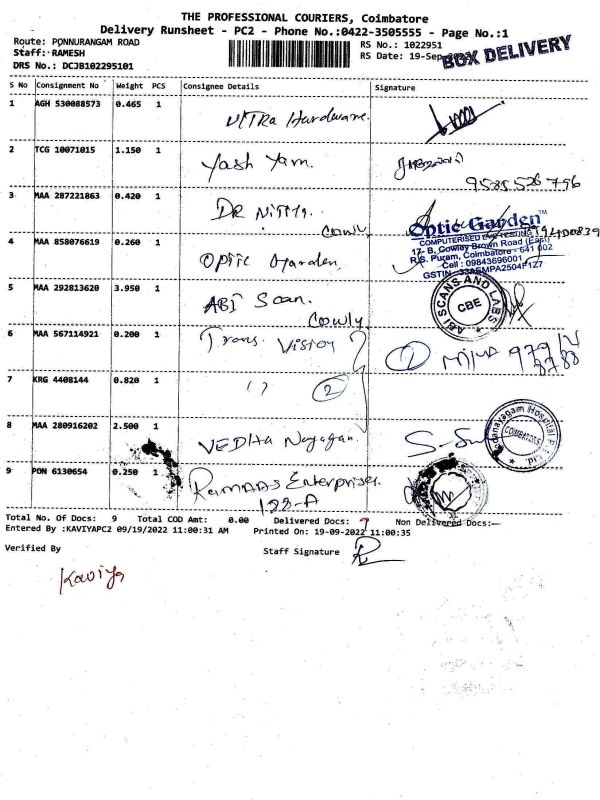 THE PROFESSIONAL COURIERS, Coimbatore
Delivery Runsheet - PC2 - Phone No.:0422-3505555 - Page No.:1
Route: PONNURANGAM ROAD
RS No.: 1022951
Staff: RAMESH
RS Date: 19-Sep
BOX DELIVERY
DRS No.: DCJB102295101
S No Consignment No Weight PCS Consignee Details Signature
1 AGH 530088573 0.465 1 Ultra Hardware.
2 TCG 10071015 1.150 1 Yash Yarn.
9585528796
3 MAA 287221863 0.420 1 DR Nithya.
Cowly
4 MAA 858076619 0.260 1 Optic Garden
Optic Garden™
COMPUTERISED EYE TESTING
17- B, Cowley Brown Road (East)
R.S. Puram, Coimbatore - 641 002
Cell : 09843696001
GSTIN : 33AEMPA2504F1Z7
5 MAA 292813620 3.950 1 ABI Scan.
Cowly
ABI SCANS AND LABS
CBE
6 MAA 567114921 0.200 1 Trans Vision
1
7 KRG 4408144 0.820 1 () 2
8 MAA 280916202 2.500 1 VEDHA Nayagan
COIMBATORE
9 PON 6130654 0.250 1 Ramdas Enterprises
122-A
Total No. Of Docs: 9 Total COD Amt: 0.00 Delivered Docs: 9 Non Delivered Docs:-
Entered By :KAVIYAPC2 09/19/2022 11:00:31 AM Printed On: 19-09-2022 11:00:35
Verified By Staff Signature
Kaviya